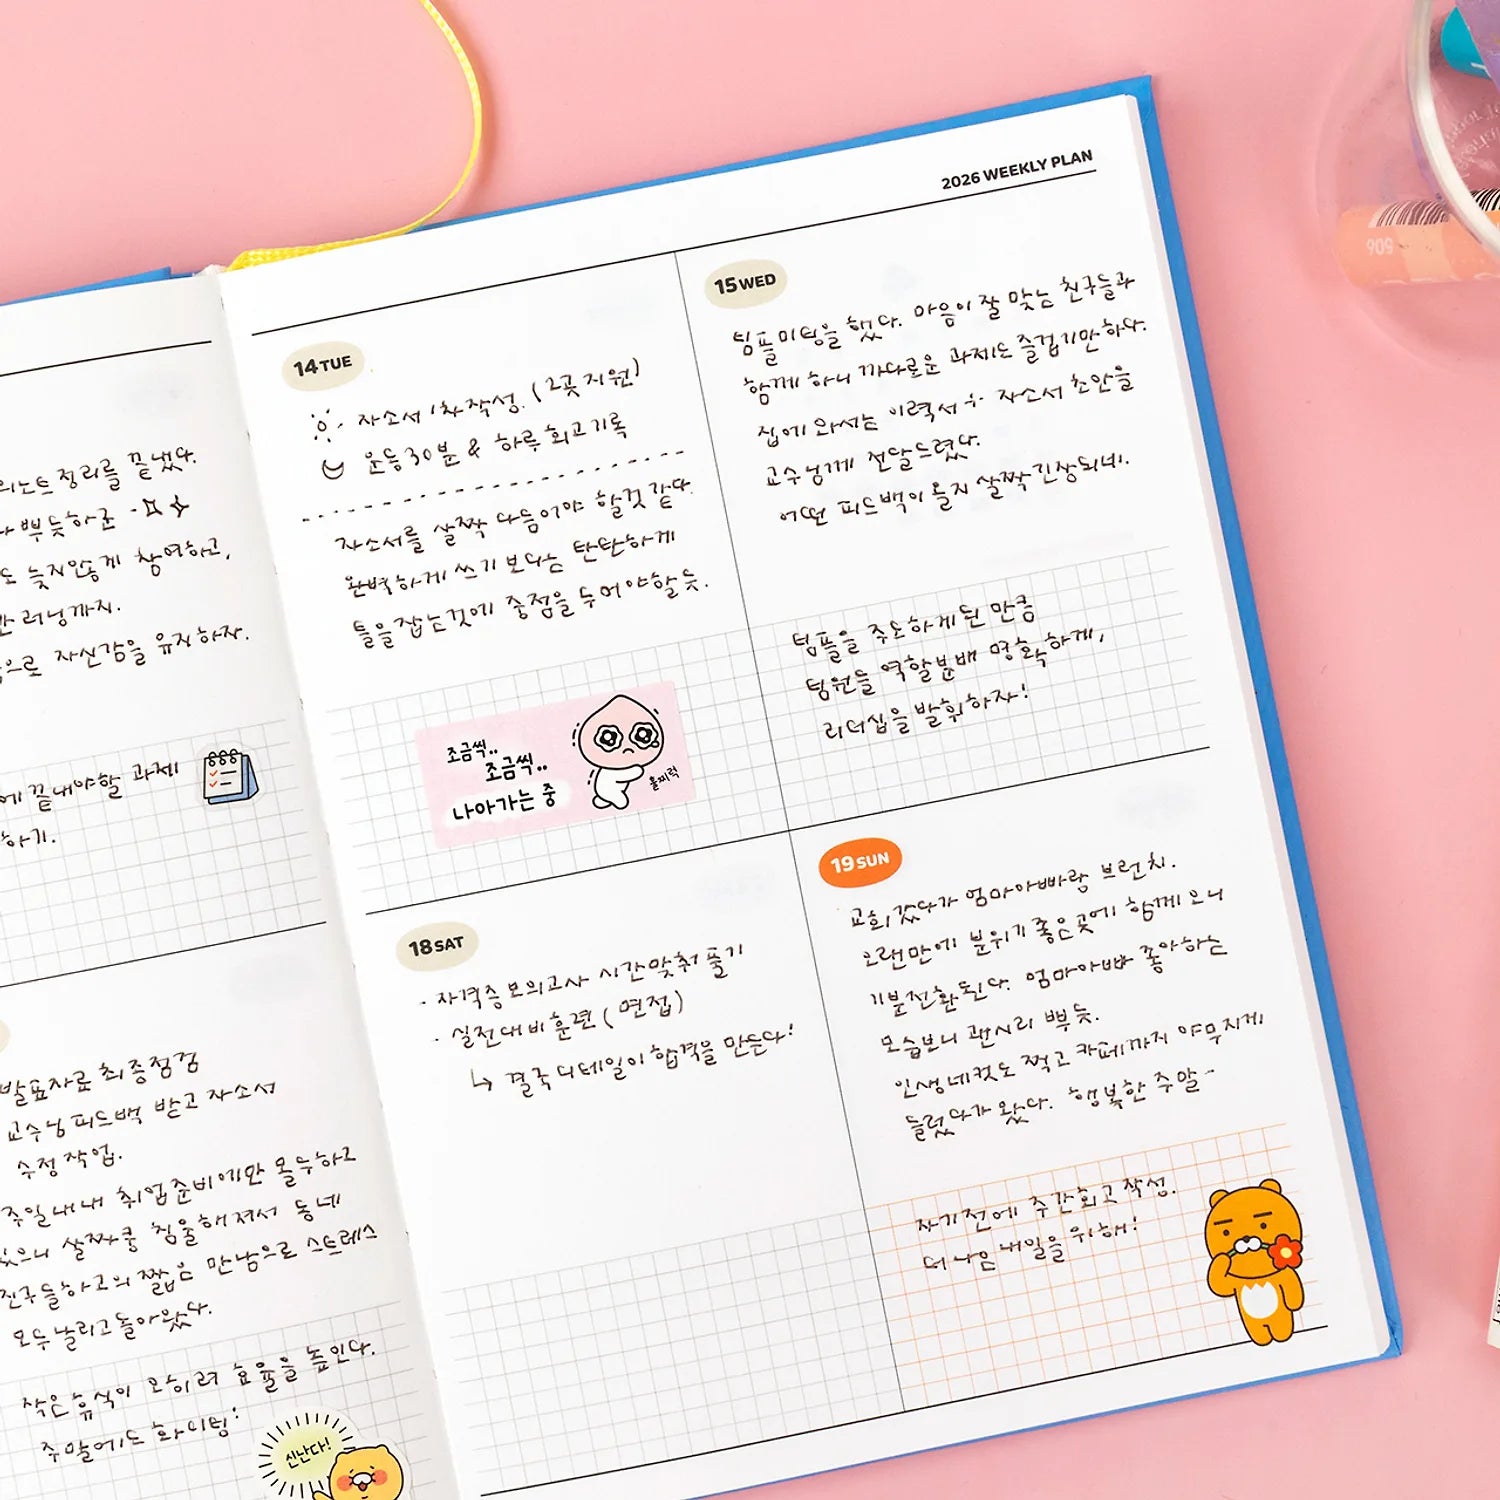 의노트 정리를 끝냈다.
뿌듯하군
도 늦지않게 참여하고,
러닝까지.
으로 자신감을 유지하자.
에 끝내야할 과제
하기.
발표자료 최종점검
교수님 피드백 받고 자소서
수정 작업.
주일내내 취업준비에만 몰두하고
있으니 살짝쿵 침울해져서 동네
친구들하고의 짧은 만남으로 스트레스
모두 날리고 돌아왔다.
작은 휴식이 오히려 효율을 높인다.
주말에도 화이팅!
신난다!
2026 WEEKLY PLAN
14 TUE
자소서 1차 작성. (2곳 지원)
운동 30분 & 하루 회고 기록
자소서를 살짝 다듬어야 할것 같다.
완벽하게 쓰기 보다는 탄탄하게
틀을 잡는것에 중점을 두어야할 듯.
조금씩..
조금씩..
나아가는 중
훌찌럭
15 WED
팀플 미팅을 했다. 마음이 잘 맞는 친구들과
함께 하니 까다로운 과제도 즐겁기만 하다.
집에 와서는 이력서 + 자소서 초안을
교수님께 전달드렸다.
어떤 피드백이 올지 살짝 긴장되네.
팀플을 주도하게 된 만큼
팀원들 역할분배 명확하게,
리더십을 발휘하자!
18 SAT
· 자격증 모의고사 시간맞춰 풀기
· 실전대비 훈련 (면접)
↳ 결국 디테일이 합격을 만든다!
19 SUN
교회 갔다가 엄마아빠랑 브런치.
오랜만에 분위기 좋은곳에 함께 오니
기분전환된다. 엄마아빠 좋아하는
모습보니 괜시리 뿌듯.
인생네컷도 찍고 카페까지 야무지게
들렀다가 왔다. 행복한 주말~
자기전에 주간회고 작성.
더 나은 내일을 위해!
906